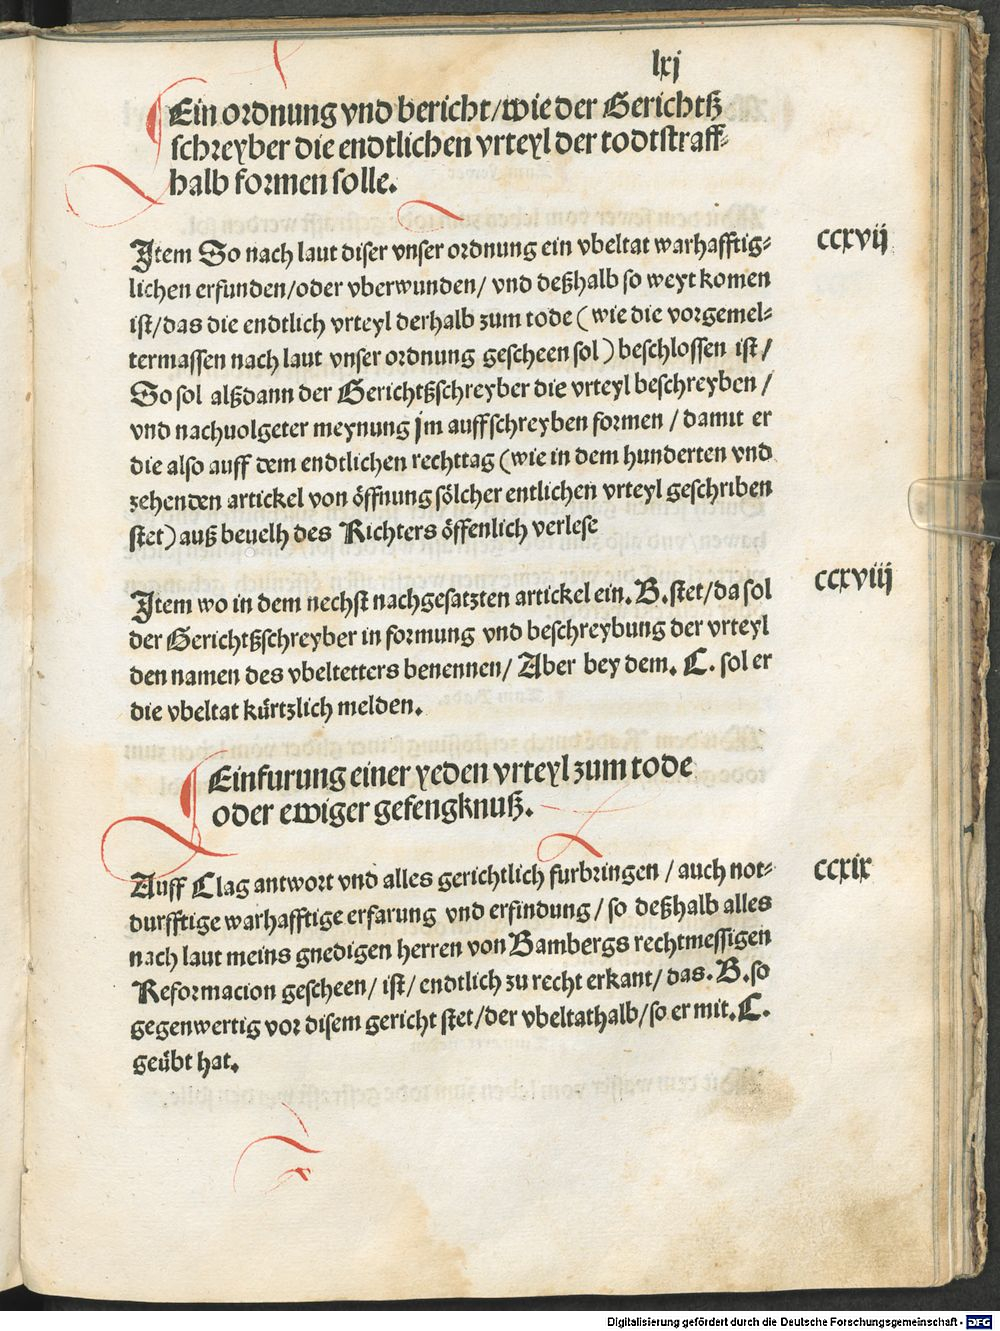 lxj
Ein ordnung vnd bericht/wie der Gerichtß
schreyber die endtlichen vrteyl der todtstraff⸗
halb formen solle.
Item So nach laut diser vnser ordnung ein vbeltat warhafftig⸗
ccxvij
lichen erfunden/oder vberwunden/ vnd deßhalb so weyt komen
ist/das die endtlich vrteyl derhalb zum tode (wie die vorgemel⸗
termassen nach laut vnser ordnung gescheen sol) beschlossen ist/
So sol alßdann der Gerichtßschreyber die vrteyl beschreyben /
vnd nachuolgeter meynung jm auffschreyben formen / damit er
die also auff dem endtlichen rechttag (wie in dem hunderten vnd
zehenden artickel von öffnung sölcher entlichen vrteyl geschriben
stet) auß beuelh des Richters öffenlich verlese
Item wo in dem nechst nachgesatzten artickel ein. B. stet/da sol
ccxviij
der Gerichtßschreyber in formung vnd beschreybung der vrteyl
den namen des vbeltetters benennen/ Aber bey dem. C. sol er
die vbeltat kürtzlich melden.
Einfurung einer yeden vrteyl zum tode
oder ewiger gefengknuß.
Auff Clag antwort vnd alles gerichtlich furbringen / auch not⸗
ccxix
durfftige warhafftige erfarung vnd erfindung/ so deßhalb alles
nach laut meins gnedigen herren von Bambergs rechtmessigen
Reformacion gescheen/ ist/ endtlich zu recht erkant/ das. B. so
gegenwertig vor disem gericht stet/der vbeltathalb/so er mit. C.
geübt hat.
Digitalisierung gefördert durch die Deutsche Forschungsgemeinschaft - DFG